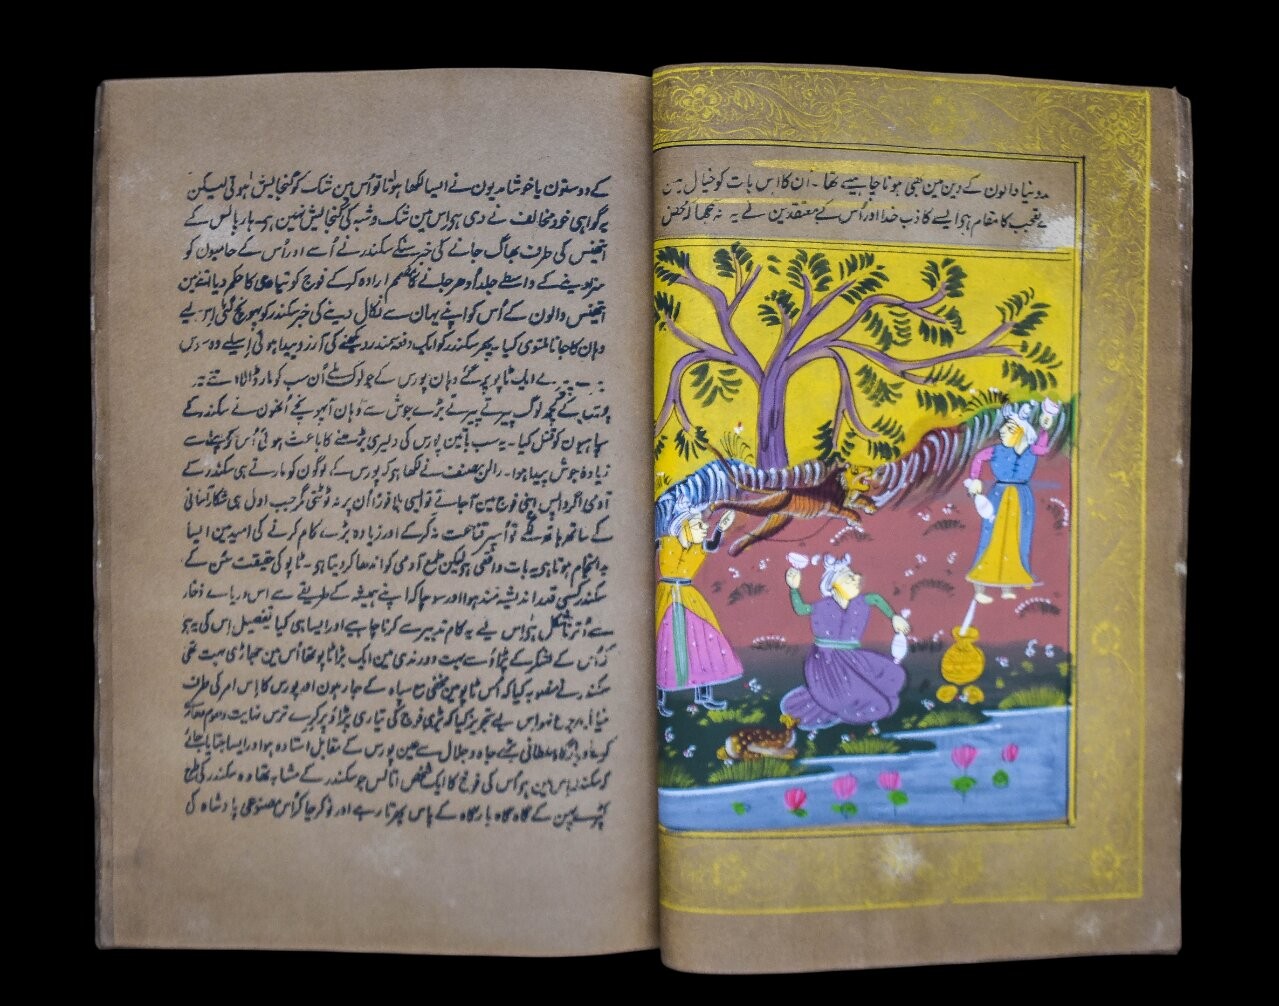 کے دوستون یا خوشامدیون نے ایسا لکھا ہوتا تو اُس مین شک کو گنجایش ہوتی لیکن
یہ گواہی خود مخالف نے دی ہو اس مین شک و شبہ کی گنجایش نہین ہو۔ ہارپالس کے
اتھنس کی طرف بھاگ جانے کی خبر سُنکے سکندر نے اُسے اور اُس کے حامیون کو
سزا دینے کے واسطے جلد اُدھر جانے کا ارادہ کرکے فوج کو تیاری کا حکم دیا اتنے مین
اتھنس والون کے اُس کو اپنے یہان سے نکال دینے کی خبر سکندر کو پہونچ گئی اِس لیے
وہان کا جانا ملتوی کیا۔ پھر سکندر کو ایک دفعہ سمندر دیکھنے کی آرزو پیدا ہوئی اِسلیے وہ
ایک ٹاپو پر گئے وہان پورس کے جو لوگ تھے اُن سب کو مار ڈالا اتنے
کے کچھ لوگ پیرتے پیرتے بڑے جوش سے وہان آ پہونچے اُنھون نے سکندر کے
سپاہیون کو قتل کیا۔ یہ سب باتین پورس کی دلیری بڑھنے کا باعث ہوئی اُس کو پہلے سے
زیادہ جوش پیدا ہوا۔ رالن مصنف نے لکھا ہو کہ پورس کے لوگون کو مارتے ہی سکندر کے
آدمی اگر واپس اپنی فوج مین آ جاتے تو ایسی بلا فوراً اُن پر نہ ٹوٹتی مگر جب اول ہی شکار آسانی
کے ساتھ ہاتھ لگے تو اُسپر قناعت نہ کرکے اور زیادہ بڑے کام کرنے کی امید مین ایسا
بد انجام ہوتا ہو یہ بات واقعی ہو لیکن طمع آدمی کو اندھا کر دیتا ہو۔ ٹاپو کی حقیقت سُن کے
سکندر کسی قدر اندیشہ مند ہوا اور سوچا کہ اپنے ہمیشہ کے طریقے سے اس دریاے ذخار
سے اُترنا مشکل ہو اس لیے یہ کام تدبیر سے کرنا چاہیے اور ایسا ہی کیا تفصیل اِس کی یہ ہو
کہ اُس کے لشکر کے پڑاؤ سے بہت دور ندی مین ایک بڑا ٹاپو تھا اُس مین جھاڑی بہت تھی
سکندر نے منصوبہ کیا کہ اُس ٹاپو مین مخفی مع سپاہ کے جا رہون اور پورس کا اِس امر کی طرف
خیال نہو اس لیے تجویز کیا کہ بڑی فوج کی تیاری پڑاؤ پر کرے نہایت دھوم دھام
سلطانی بڑے جاہ و جلال سے عین پورس کے مقابل استادہ ہو اور ایسا جتایا جائے
کہ سکندر اِس مین ہو اُس کی فوج کا ایک شخص اٹالس جو سکندر کے مشابہ تھا وہ سکندر کی طرح
کپڑے پہن کے گاہ گاہ بارگاہ کے پاس پھرتا رہے اور نوکر چاکر اُس مصنوعی پادشاہ کی
مدو نیا والون کے دین مین بھی ہونا چاہیے تھا۔ اُن کا اس بات کو خیال مین
تعجب کا مقام ہو ایسے کاذب خدا اور اُس کے معتقدین نے یہ نہ سمجھا کہ محض